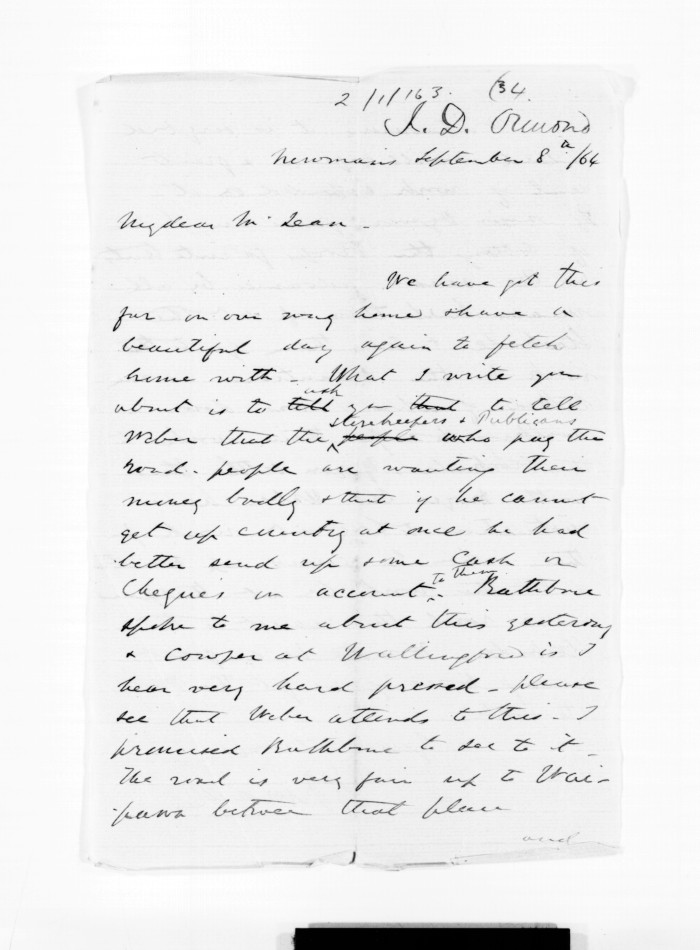 2/1/163. (34.
J. D. Ormond
Newman's September 8th/64
My dear McLean -
We have got this
far on our way home & have a
beautiful day again to fetch
home with - What I write you
about is to tell ask you that to tell
Weber that the people storekeepers & Publicans who pay the
road-people are wanting their
money badly & that if he cannot
get up country at once he had
better send up some Cash or
Cheques on account to them - Rathbone
spoke to me about this yesterday
& Cowper at Wallingford is I
hear very hard pressed - please
see that Weber attends to this - I
promised Rathbone to see to it -
The road is very fair up to Wai-
pawa between that place
and